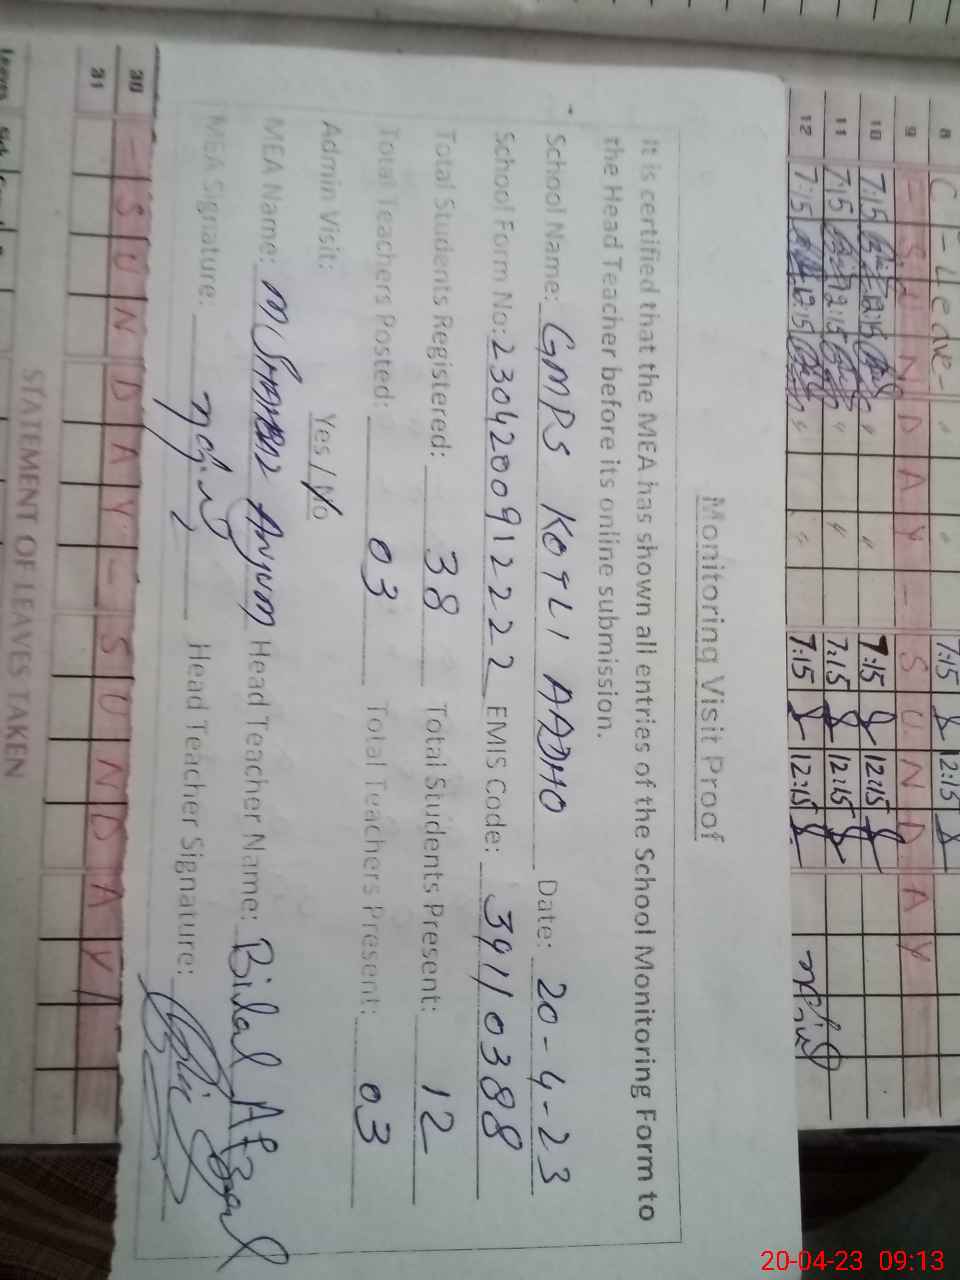 8 C - Leave - " " 7:15 12:15
9 - S U N D A Y - S U N D A Y
10 7:15 12:15 " " 7:15 12:15
11 7:15 12:15 " " 7:15 12:15
12 7:15 12:15 " " 7:15 12:15
Monitoring Visit Proof
It is certified that the MEA has shown all entries of the School Monitoring Form to
the Head Teacher before its online submission.
School Name: GMPS KOTLI AADHO Date: 20-4-23
School Form No: 2304200912222 EMIS Code: 39110388
Total Students Registered: 38 Total Students Present: 12
Total Teachers Posted: 03 Total Teachers Present: 03
Admin Visit: Yes / No
MEA Name: M Shahbaz Anjum Head Teacher Name: Bilal Afzal
MEA Signature: Head Teacher Signature:
30 - S U N D A Y - S U N D A Y
31
STATEMENT OF LEAVES TAKEN
Leaves Sick
20-04-23 09:13